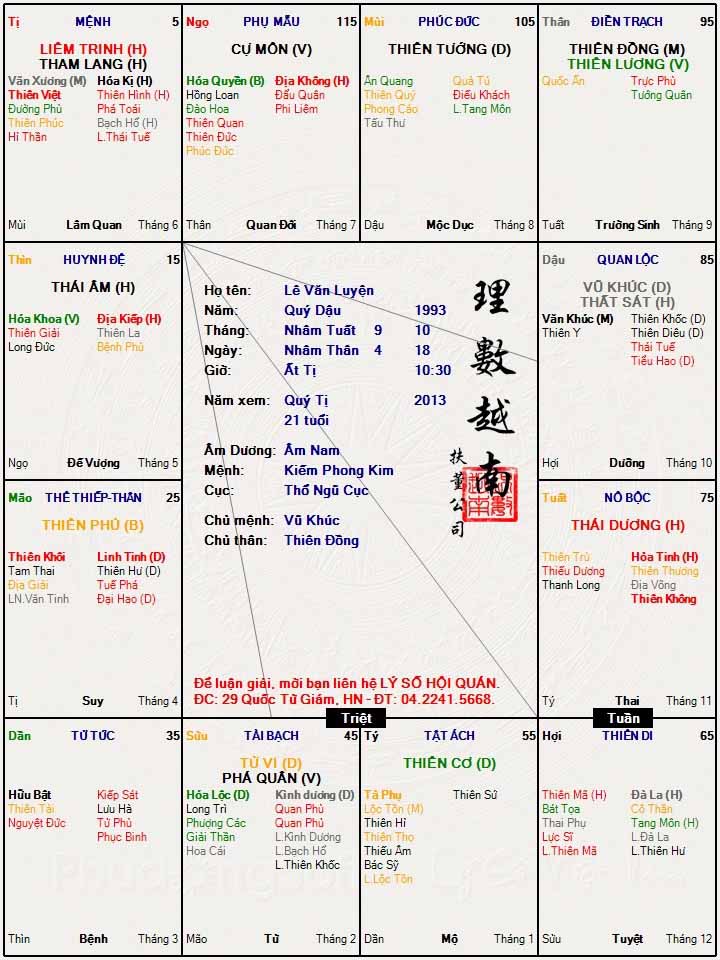 Tị MỆNH 5
LIÊM TRINH (H)
THAM LANG (H)
Văn Xương (M) Hóa Kị (H)
Thiên Việt Thiên Hình (H)
Đường Phù Phá Toái
Thiên Phúc Bạch Hổ (H)
Hỉ Thần L.Thái Tuế
Mùi Lâm Quan Tháng 6
Ngọ PHỤ MẪU 115
CỰ MÔN (V)
Hóa Quyền (B) Địa Không (H)
Hồng Loan Đẩu Quân
Đào Hoa Phi Liêm
Thiên Quan
Thiên Đức
Phúc Đức
Thân Quan Đới Tháng 7
Mùi PHÚC ĐỨC 105
THIÊN TƯỚNG (D)
Ân Quang Quả Tú
Thiên Quý Điếu Khách
Phong Cáo L.Tang Môn
Tấu Thư
Dậu Mộc Dục Tháng 8
Thân ĐIỀN TRẠCH 95
THIÊN ĐỒNG (M)
THIÊN LƯƠNG (V)
Quốc Ấn Trực Phù
Tướng Quân
Tuất Trường Sinh Tháng 9
Thìn HUYNH ĐỆ 15
THÁI ÂM (H)
Hóa Khoa (V) Địa Kiếp (H)
Thiên Giải Thiên La
Long Đức Bệnh Phù
Ngọ Đế Vượng Tháng 5
Họ tên: Lê Văn Luyện
Năm: Quý Dậu 1993
Tháng: Nhâm Tuất 9 10
Ngày: Nhâm Thân 4 18
Giờ: Ất Tị 10:30
Năm xem: Quý Tị 2013
21 tuổi
Âm Dương: Âm Nam
Mệnh: Kiếm Phong Kim
Cục: Thổ Ngũ Cục
Chủ mệnh: Vũ Khúc
Chủ thân: Thiên Đồng
理數越南
扶董公司
Để luận giải, mời bạn liên hệ LÝ SỐ HỘI QUÁN.
ĐC: 29 Quốc Tử Giám, HN - ĐT: 04.2241.5668.
Dậu QUAN LỘC 85
VŨ KHÚC (D)
THẤT SÁT (H)
Văn Khúc (M) Thiên Khốc (D)
Thiên Y Thiên Diêu (D)
Thái Tuế
Tiểu Hao (D)
Hợi Dưỡng Tháng 10
Mão THÊ THIẾP-THÂN 25
THIÊN PHỦ (B)
Thiên Khôi Linh Tinh (D)
Tam Thai Thiên Hư (D)
Địa Giải Tuế Phá
LN.Văn Tinh Đại Hao (D)
Tị Suy Tháng 4
Tuất NÔ BỘC 75
THÁI DƯƠNG (H)
Thiên Trù Hỏa Tinh (H)
Thiếu Dương Thiên Thương
Thanh Long Địa Võng
Thiên Không
Tý Thai Tháng 11
Triệt
Tuần
Dần TỬ TỨC 35
Hữu Bật Kiếp Sát
Thiên Tài Lưu Hà
Nguyệt Đức Tử Phù
Phục Binh
Thìn Bệnh Tháng 3
Sửu TÀI BẠCH 45
TỬ VI (D)
PHÁ QUÂN (V)
Hóa Lộc (D) Kình dương (D)
Long Trì Quan Phù
Phượng Các Quan Phủ
Giải Thần L.Kình Dương
Hoa Cái L.Bạch Hổ
L.Thiên Khốc
Mão Tử Tháng 2
Tý TẬT ÁCH 55
THIÊN CƠ (D)
Tả Phụ Thiên Sứ
Lộc Tồn (M)
Thiên Hỉ
Thiên Thọ
Thiếu Âm
Bác Sỹ
L.Lộc Tồn
Dần Mộ Tháng 1
Hợi THIÊN DI 65
Thiên Mã (H) Đà La (H)
Bát Tọa Cô Thần
Thai Phụ Tang Môn (H)
Lực Sĩ L.Đà La
L.Thiên Mã L.Thiên Hư
Sửu Tuyệt Tháng 12